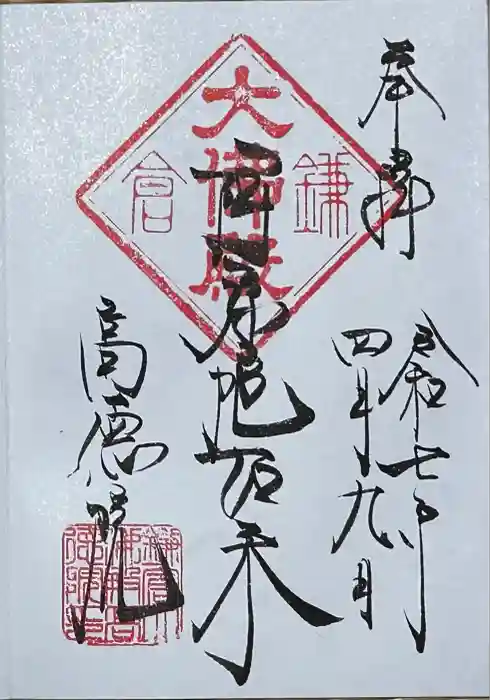 奉拝
令和七年
四月九日
鎌倉
大佛殿
阿弥陀如来
高徳院